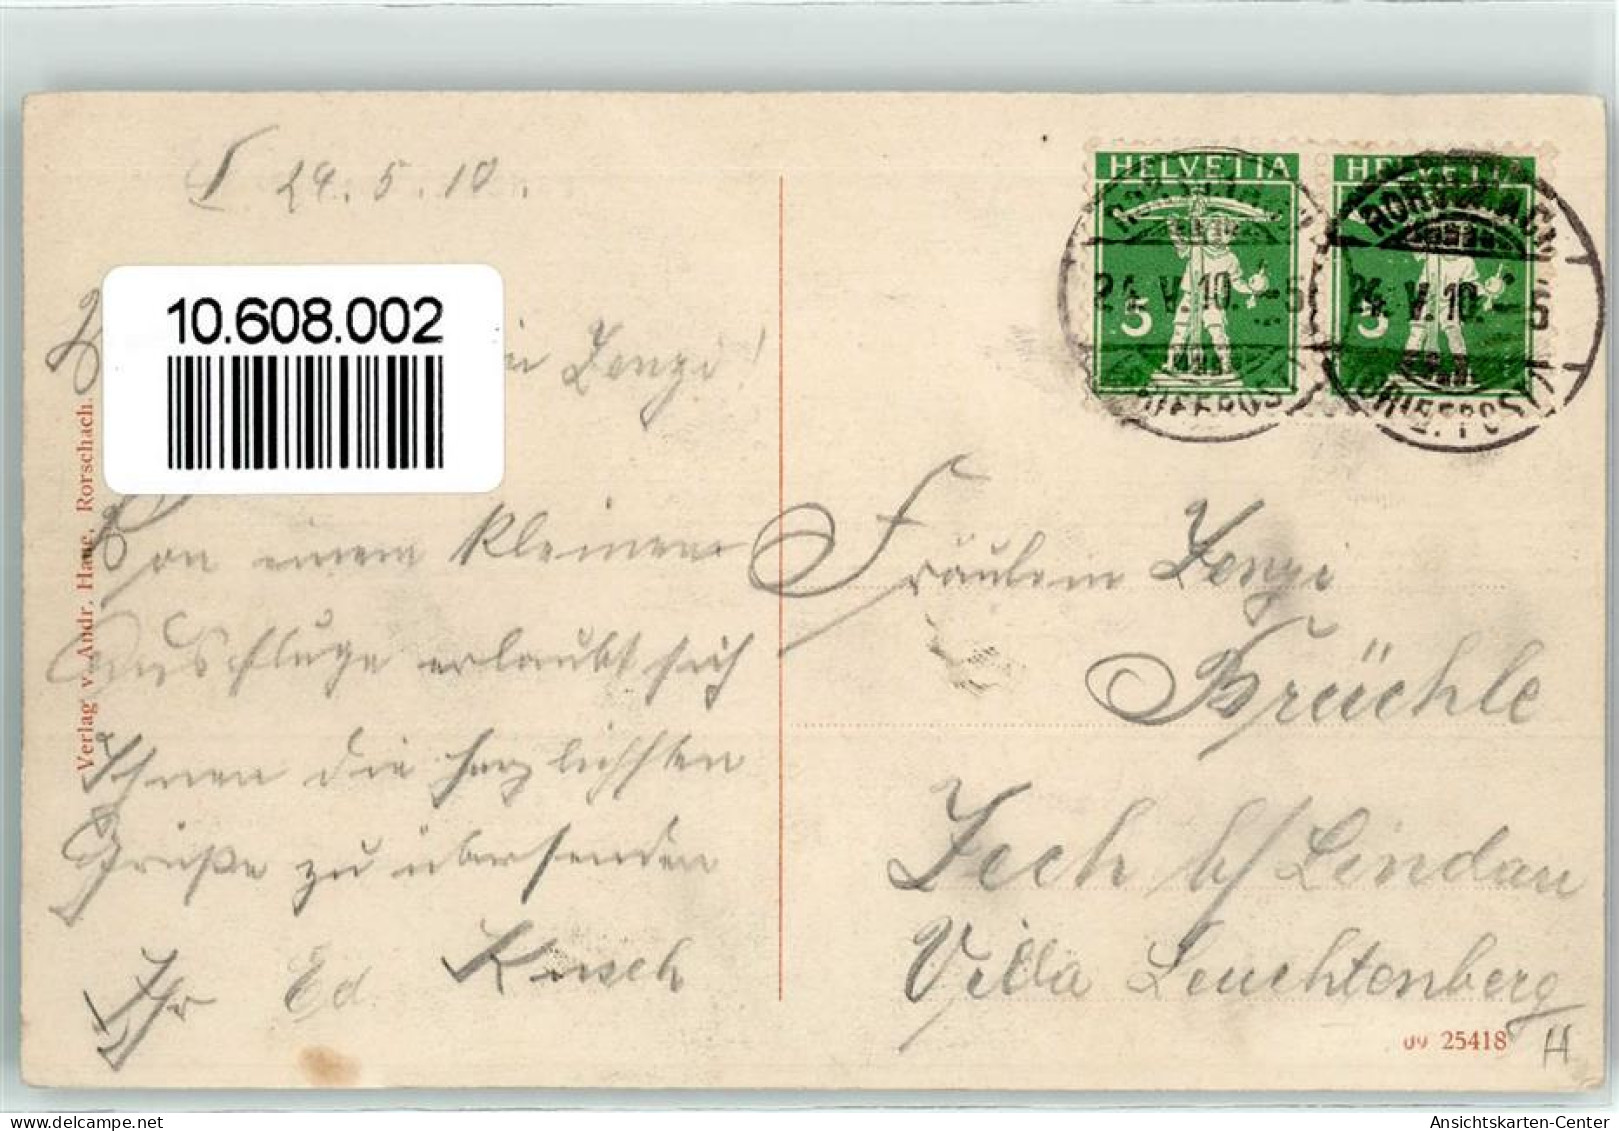 24.5.10.
10.608.002
Zenzi!
Von einem kleinen
Ausfluge erlaubt sich
Ihnen die herzlichsten
Grüße zu übersenden
Ihr Ed. Knisch
Verlag v. Andr. Hane, Rorschach.
HELVETIA HELVETIA
5 5
RORSCHACH
24.V.10.-5
BRIEFPOST
RORSCHACH
24.V.10.-5
BRIEFPOST
Fräulein Zenzi
Brüchle
Zech b/ Lindau
Villa Leuchtenberg
09 25418
H
Ansichtskarten-Center